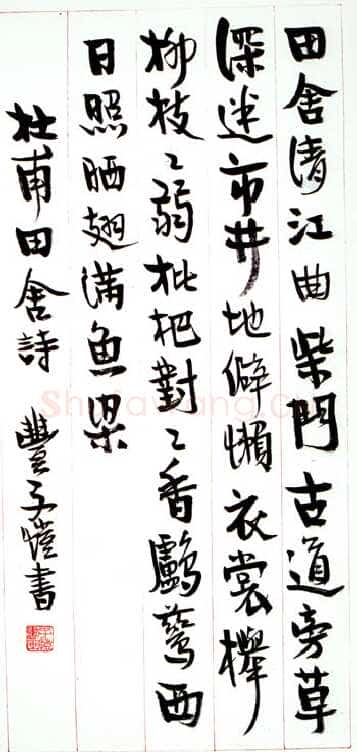 田舍清江曲柴門古道旁草
深迷市井地僻懶衣裳櫸
柳枝〻弱枇杷對〻香鸕鶿西
日照晒翅满鱼梁
杜甫田舍詩 豐子愷書